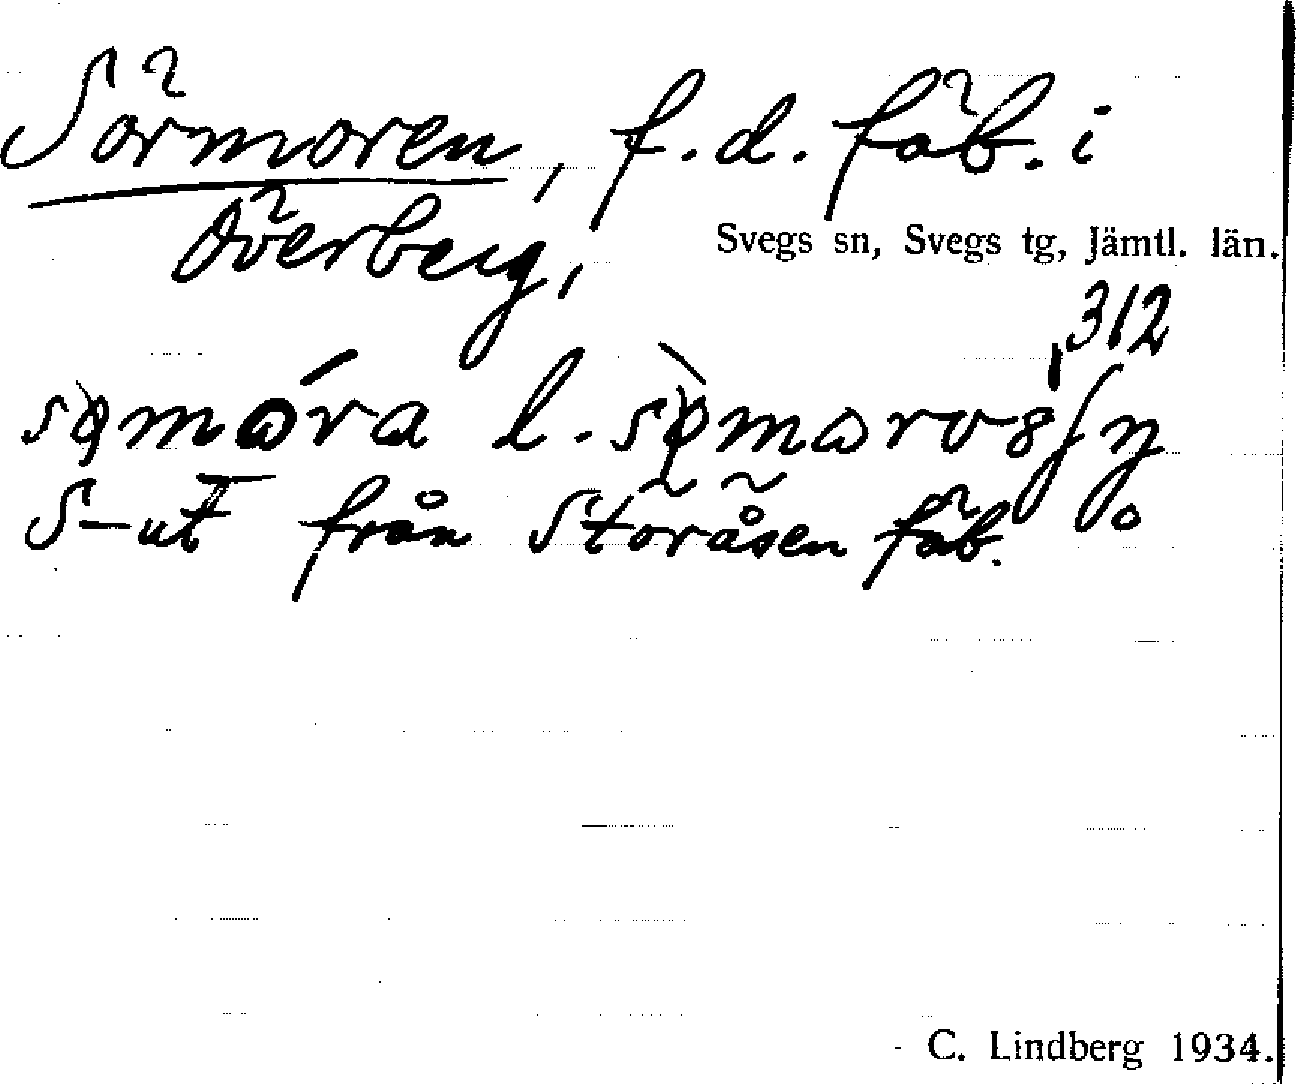 Sörmoren, f.d. fäb. i
Överberg,
Svegs sn, Svegs tg, Jämtl. län.
312
l.
S-ut från Storåsen fäb.
C. Lindberg 1934.